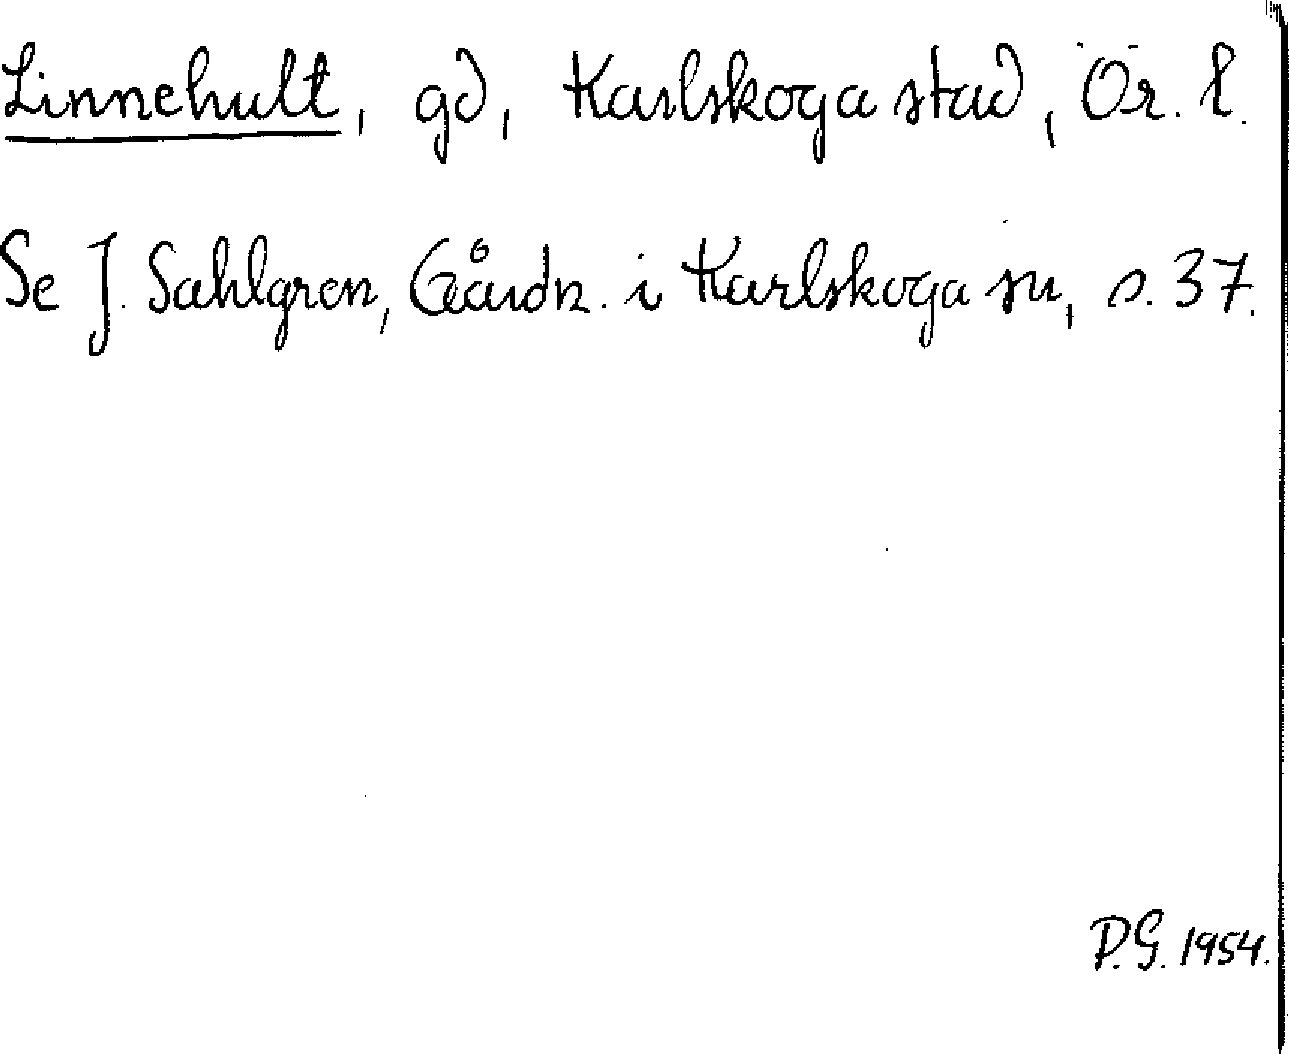 Linnehult, gd, Karlskoga stad, Ör. l.
Se J. Sahlgren, Gårdn. i Karlskoga sn, s. 37.
P.G. 1954.